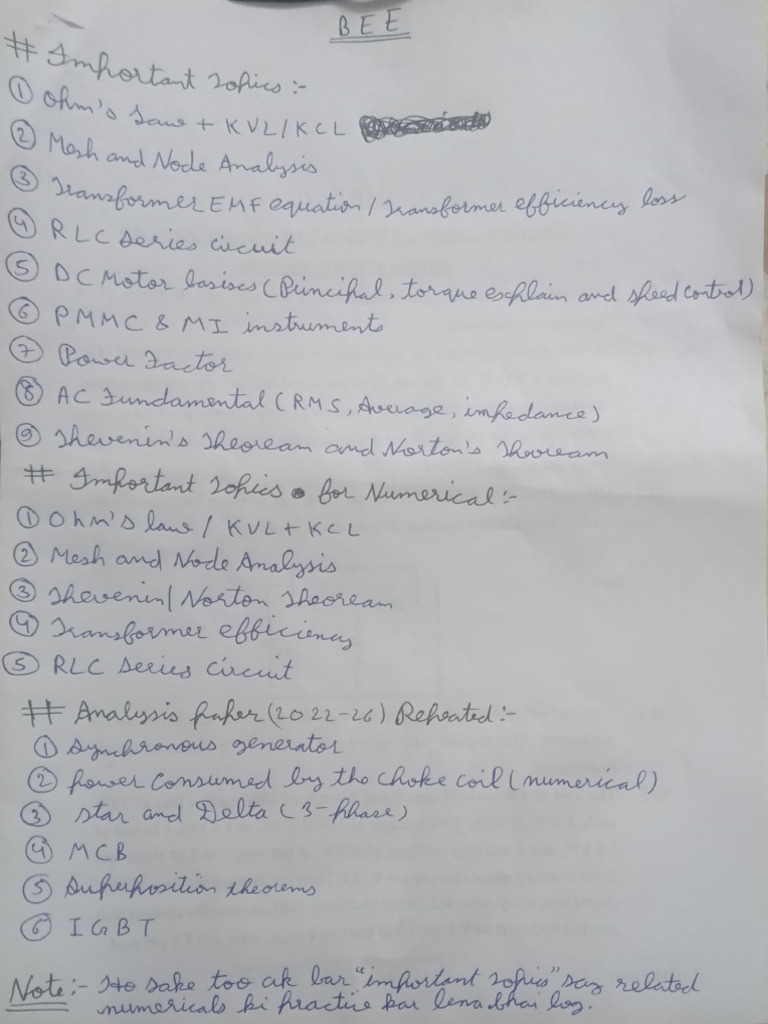 BEE
# Important Topics :-
① Ohm's Law + KVL/KCL
② Mesh and Node Analysis
③ Transformer EMF equation / Transformer efficiency loss
④ RLC series circuit
⑤ DC Motor basiscs (Principal, torque explain and speed control)
⑥ PMMC & MI instruments
⑦ Power Factor
⑧ AC Fundamental (RMS, Average, impedance)
⑨ Thevenin's Theoream and Norton's Theoream
# Important Topics for Numerical :-
① Ohm's law / KVL + KCL
② Mesh and Node Analysis
③ Thevenin/ Norton Theoream
④ Transformer efficiency
⑤ RLC series circuit
# Analysis paper (2022-26) Repeated :-
① Synchronous generator
② power consumed by the choke coil (numerical)
③ star and Delta (3-phase)
④ MCB
⑤ Superposition theorems
⑥ IGBT
Note :- Ho sake too ak bar "important topics" say related
numericals ki practice kar lena bhai log.